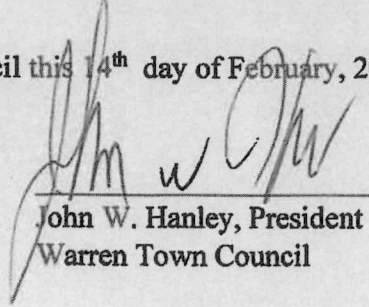 cil this 14th day of February, 2
John W. Hanley, President
Warren Town Council